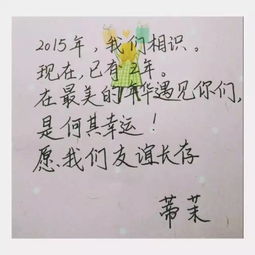 2015年，我们相识。
现在，已有2年。
在最美的年华遇见你们，
是何其幸运！
愿我们友谊长存
蒂茉